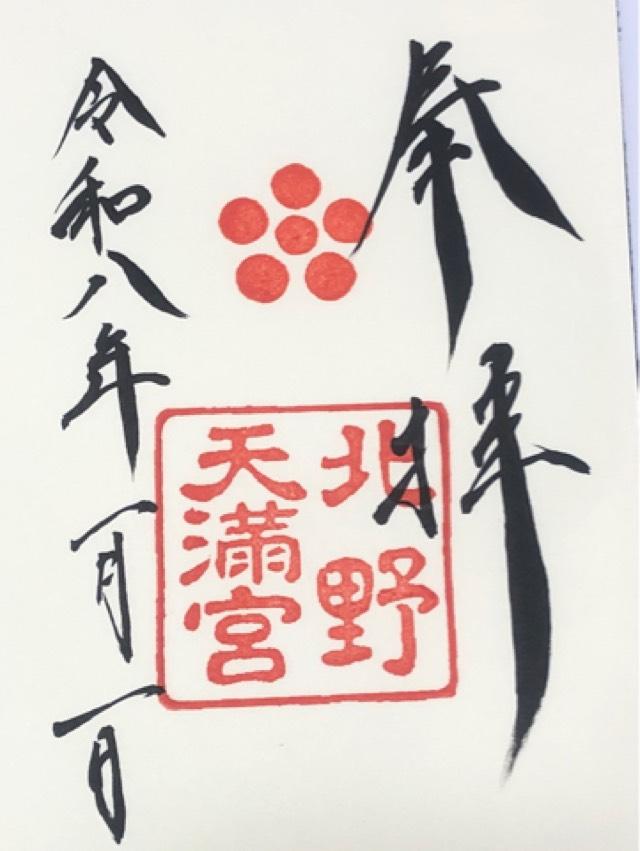 奉拝
北野
天満宮
令和八年一月一日